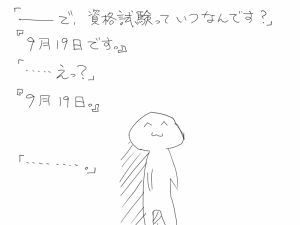 「――で、資格試験っていつなんです？」
『9月19日です。』
「‥‥‥えっ？」
『9月19日。』
「‥‥‥‥。」